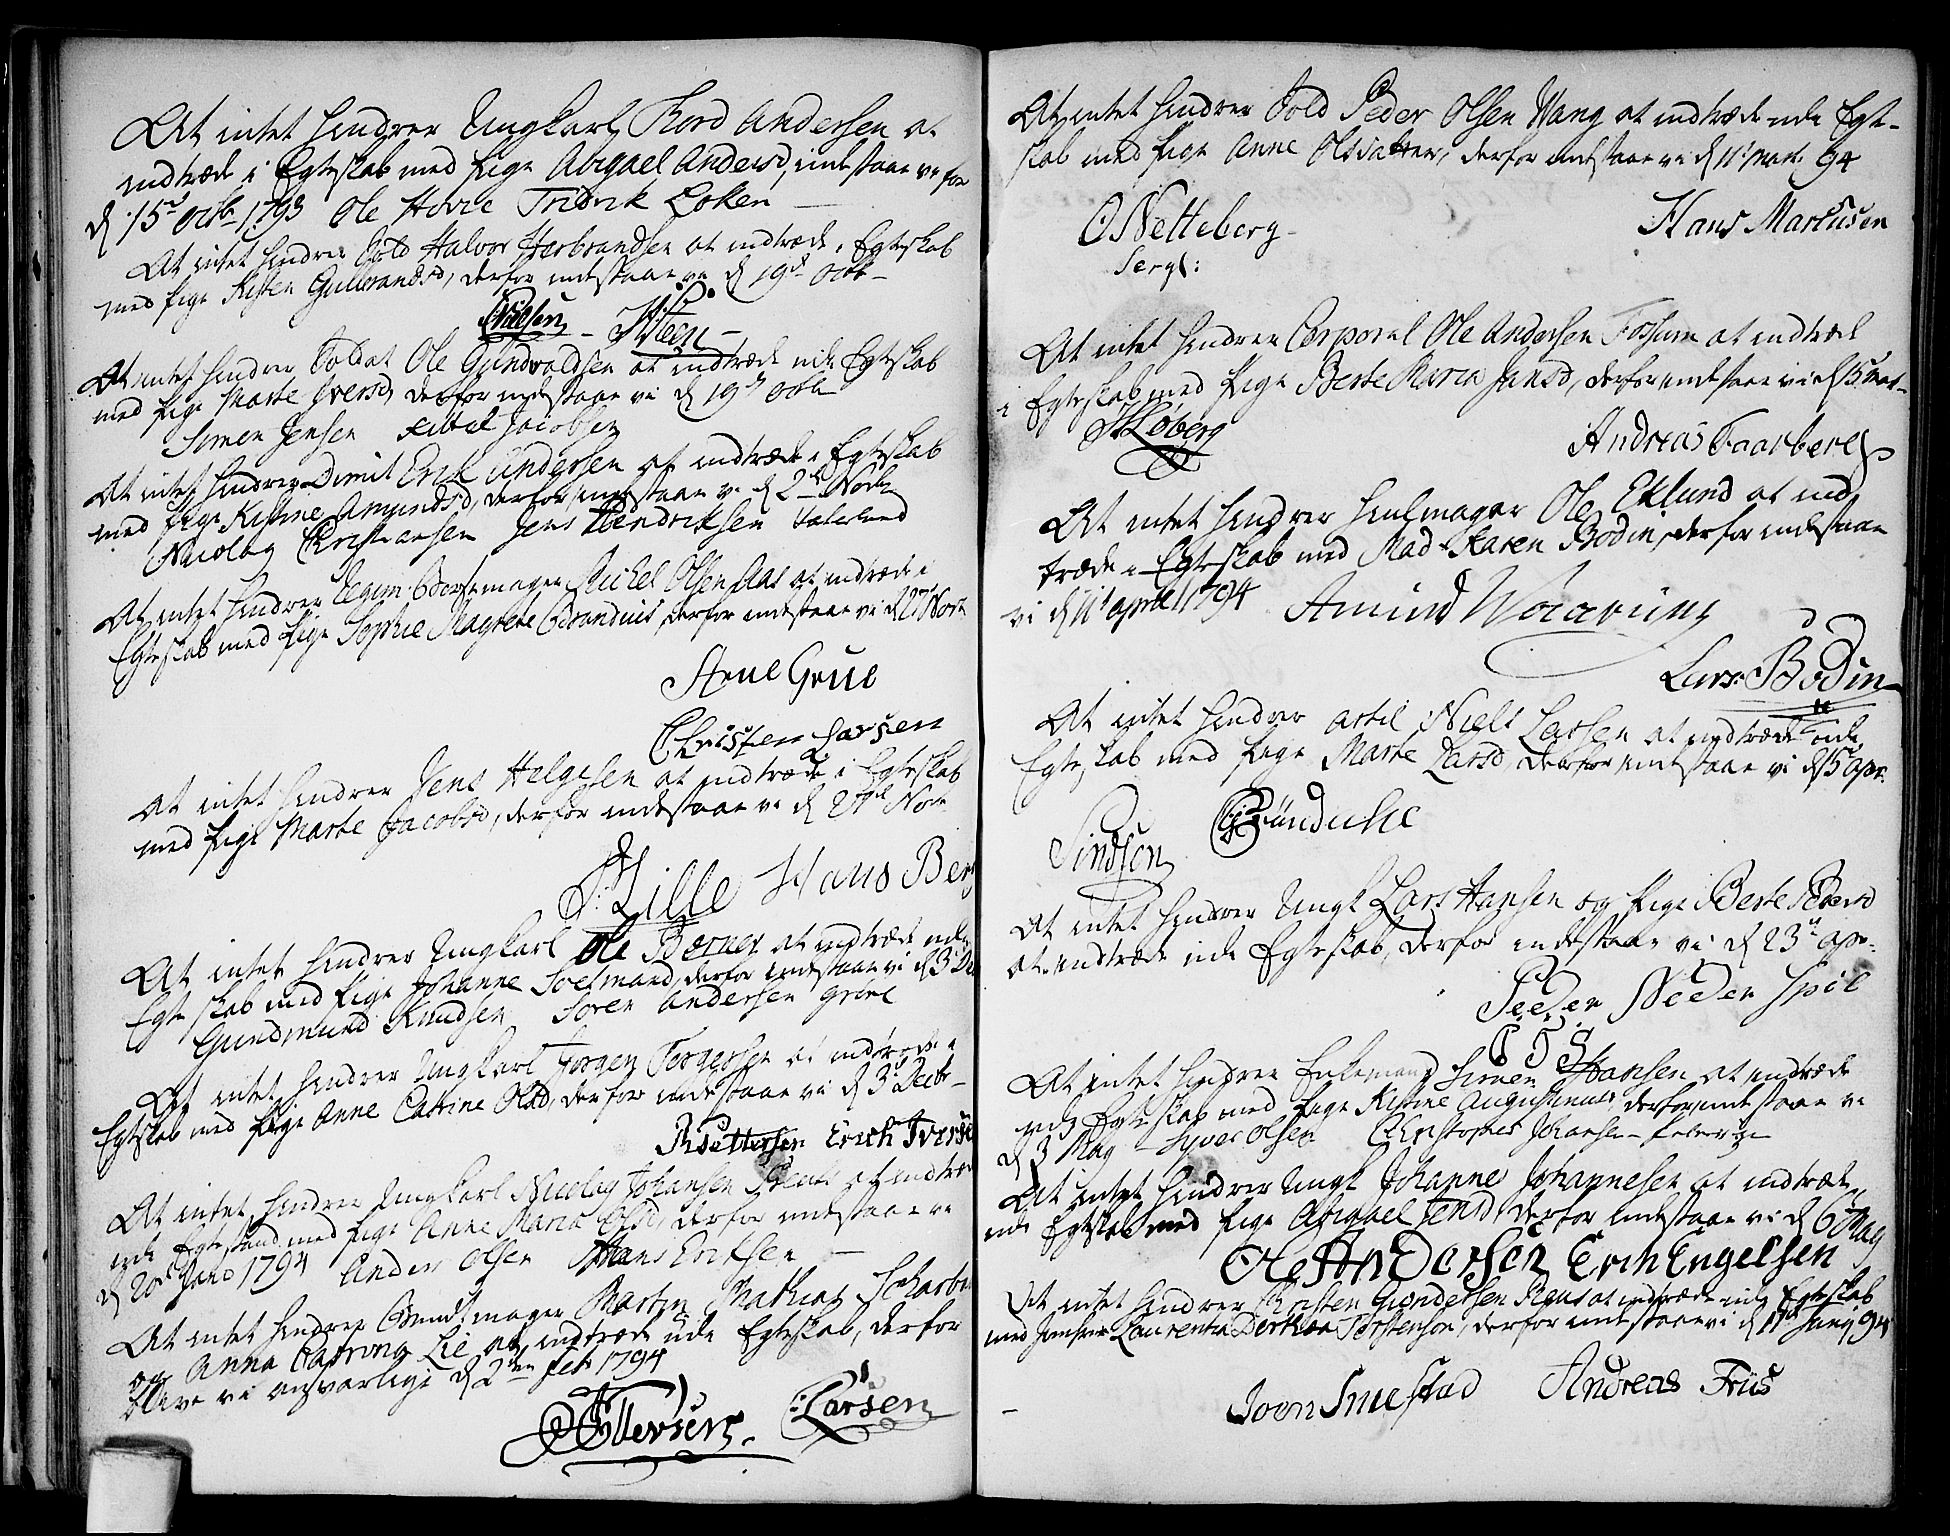 At intet hindrer Ungkarl Thord Andersen at
indtræde i Egteskab med Pige Abigael Andersd, indestaar vi for
d 15de octb 1793 Ole Hovie Fridrik Løken
At intet hindrer Sold Halvor Herbrandsen at indtræde i Egteskab
med Pige Kisten Gulbrandsd, derfor indestaar vi d 19de octb
Nielsen - Steen -
At intet hindrer Soldat Ole Gundvoldsen at indtræde udi Egteskab
med Pige Marte Iversd, derfor indestaar vi d 19de octb
Simen Jensen Jacobsen
At intet hindrer Dimit Erik Andersen at indtræde i Egteskab
med Pige Kistine Amundsd, derfor indestaar vi d 2de Novb
Nicolay Christiansen Jens Hendriksen Vaterland
At intet hindrer Michel Olsen Aas at indtræde i
Egteskab med Pige Sophie Magrete, derfor indestaar vi d 27 Novb
Arne Grue
Christen Larsen
At intet hindrer Jens Helgesen at indtræde i Egteskab
med Pige Marte Jacobsd, derfor indestaar vi d Novb
Lille Hans Ber
At intet hindrer Ungkarl Ole Berner at indtræde udi
Egteskab med Pige Johanne, derfor indestaar vi d 3 De
Gundmund Knudsen Søren Andersen
At intet hindrer Ungkarl Jørgen Torgersen at indtræde i
Egteskab med Pige Anne Catrine Olsd, derfor indestaar vi d 3 Decbr
Erich Iverse
At intet hindrer Ungkarl Nicolay Johansen at indtræ
udi Egtestand med Pige Anne Maria Olsd, derfor indestaar vi
d 20de Janv 1794 Ander Olsen Hans Eriksen
At intet hindrer Martin Mathias Scharb
og Anna Lie at indtræde udi Egteskab, derfor
blive vi ansvarlige d 2den feb 1794
Ellevsen. Larsen
At intet hindrer Sold Peder Olsen Wang at indtræde udi Egte-
skab med Pige Anne Olsdatter, derfor indestaar vi d 11te mart 94
O Netteberg Hans Martusen
Sergt:
At intet hindrer Corporal Ole Andersen Fossum at indtræde
i Egteskab med Pige Berte Maria Jensd, derfor indestaar vi d 15 mar
Løberg Andreas Faarberg
At intet hindrer Hiulmager Ole Eklund at ind
træde i Egteskab med Mad Karen Bodin, derfor indestaar
vi d 11te april 1794 Amund
Lars: Bodin
At intet hindrer artil Niels Larsen at indtræde udi
Egteskab med Pige Marte Larsd, derfor indestaar vi d 15 apr:
Sindsen
At intet hindrer Ungk Lars Hansen og Pige Berte Pedersd
at indtræde udi Egteskab, derfor indestaar vi d 23de apr:
Peder Neder
At intet hindrer Enkemand Simen Hansen at indtræde
udi Egteskab med Pige Kistine, derfor indestaar vi
d 3 May - Syver Olsen Christopher Johansen
At intet hindrer Ungk Johanne Johannesen at indtræde
udi Egteskab med Pige Abigael Jensd, derfor indestaar vi d 6 May
Ole Andersen Erich Engelsen
At intet hindrer Kristen Gundersen at indtræde udi Egteskab
med Jomfrue Laurentia Dorthea Torstenson, derfor indestaar vi d 11te Junij 94
Joen Smestad Andreas Friis